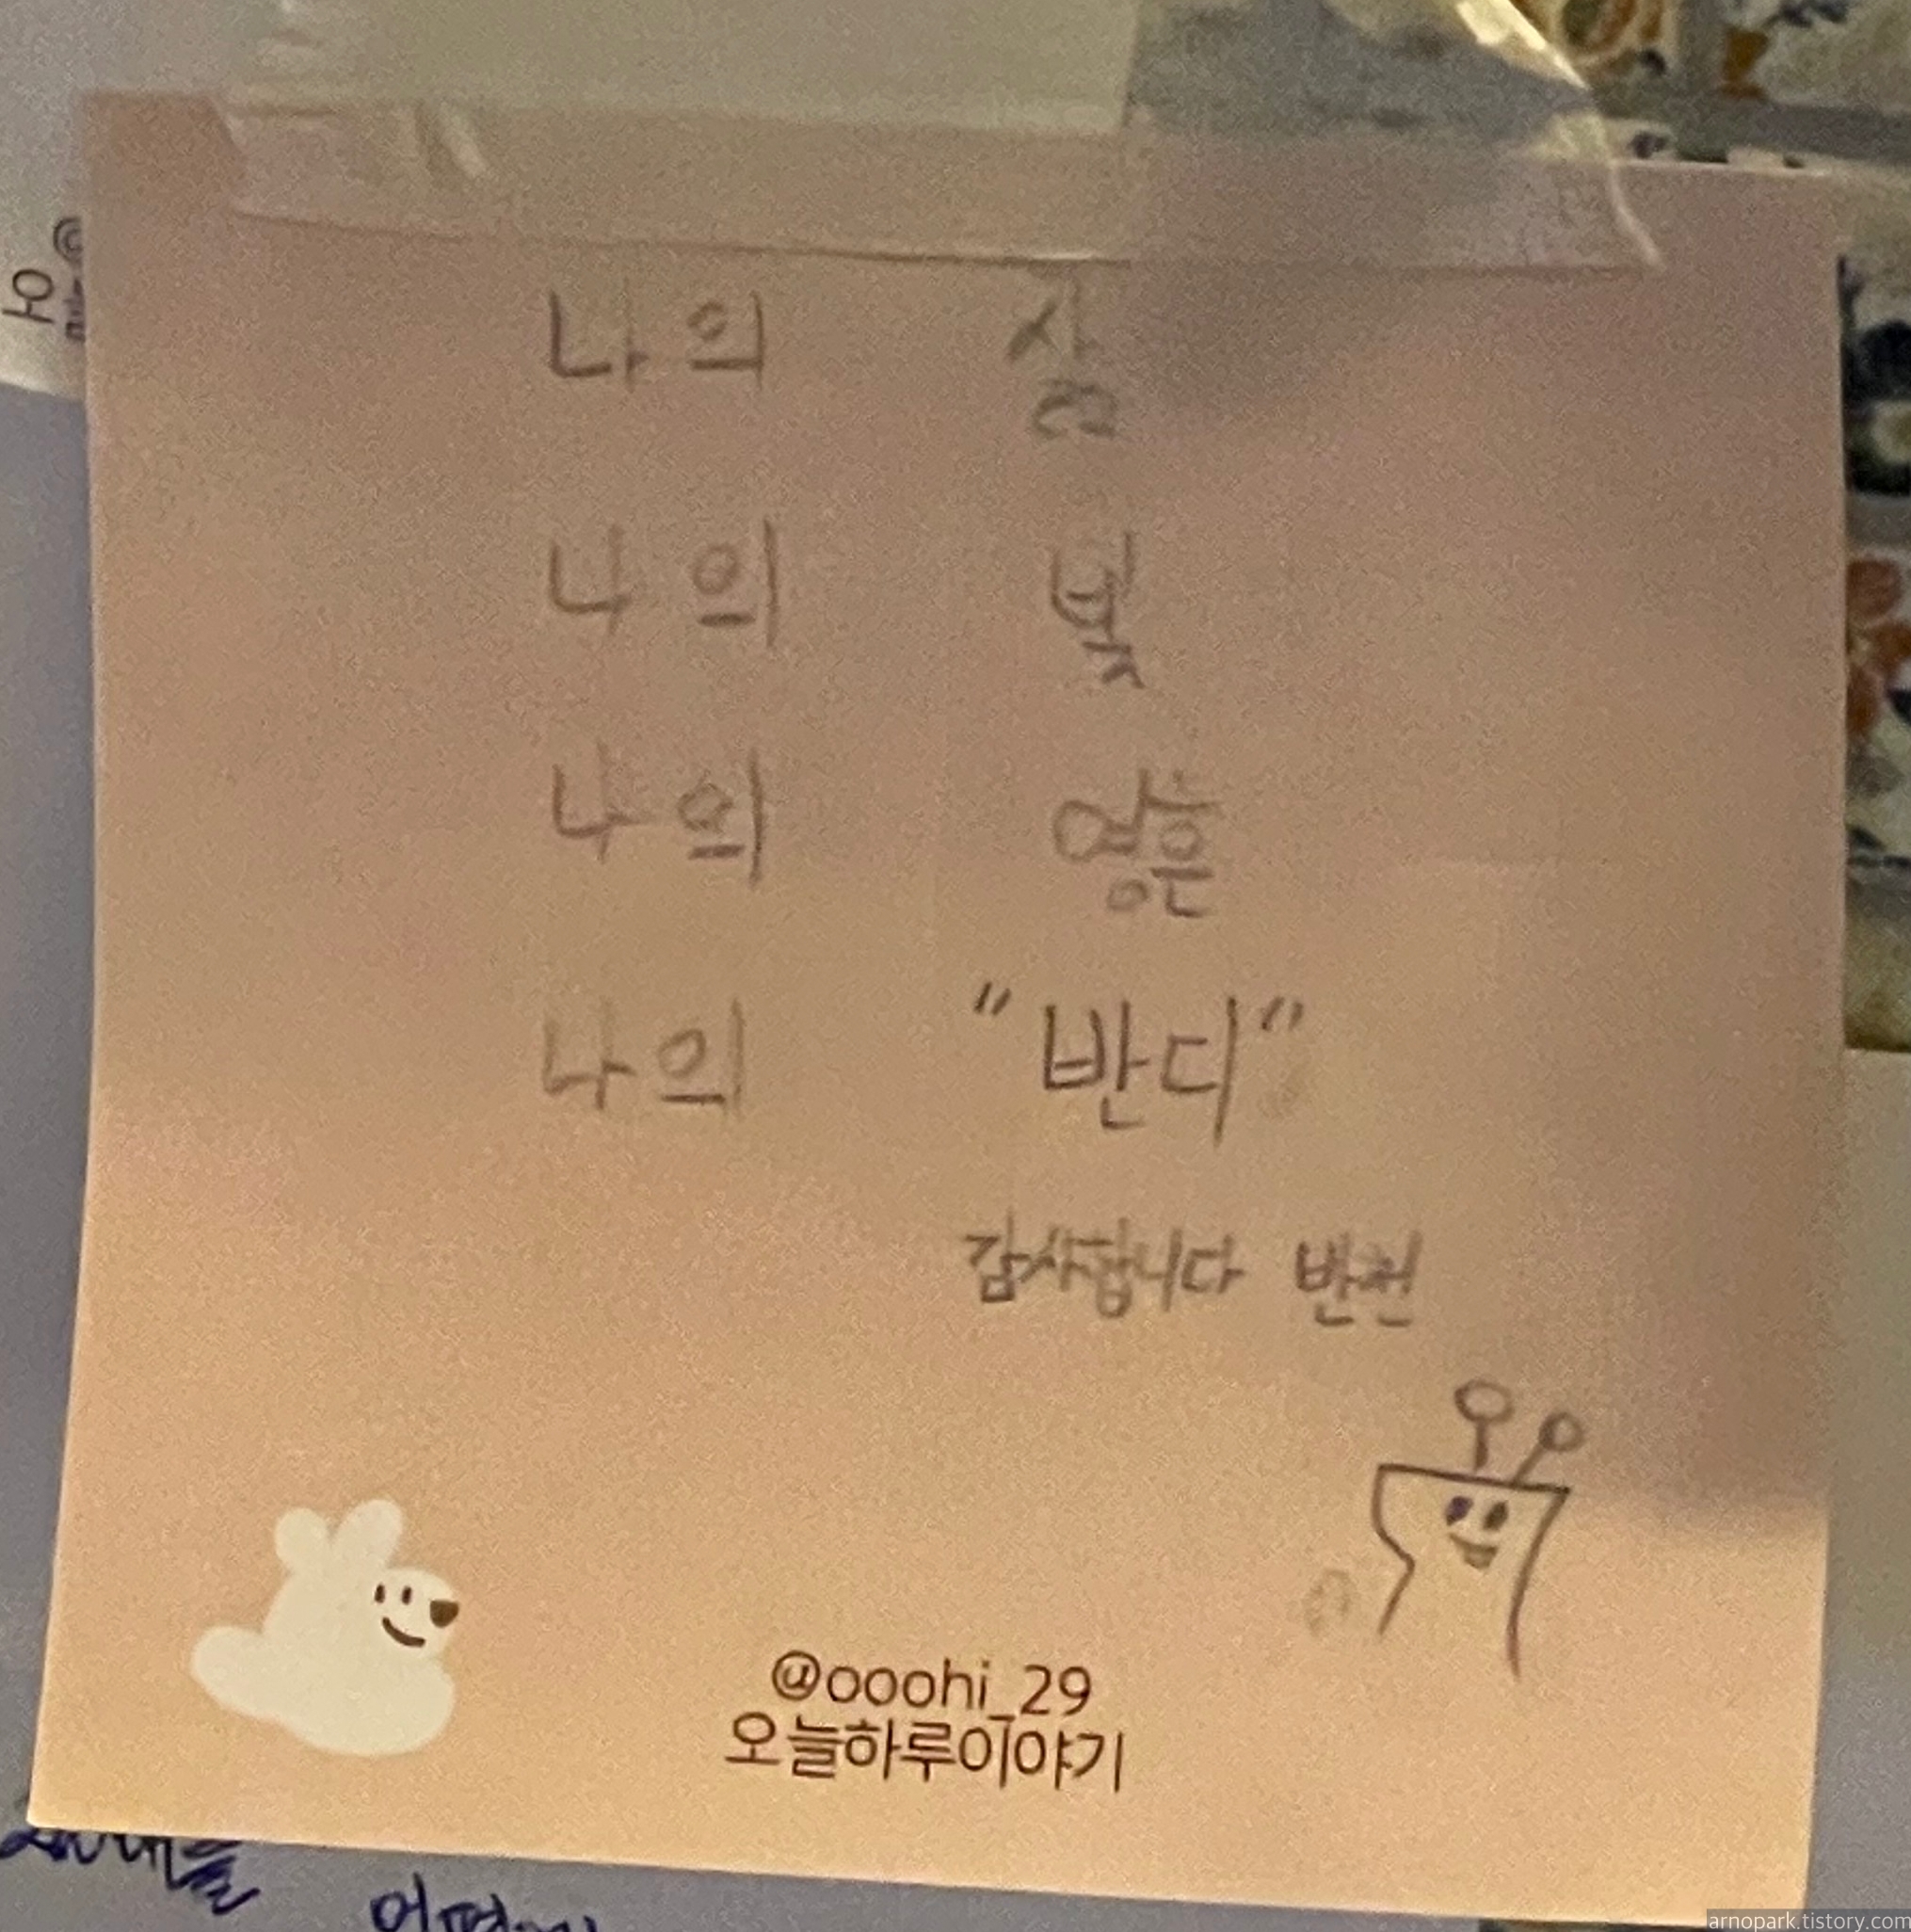 나의 삶
나의 빛
나의 젊은
나의 "반디"
감사합니다 반천
@ooohi_29
오늘하루이야기
arnopark.tistory.com